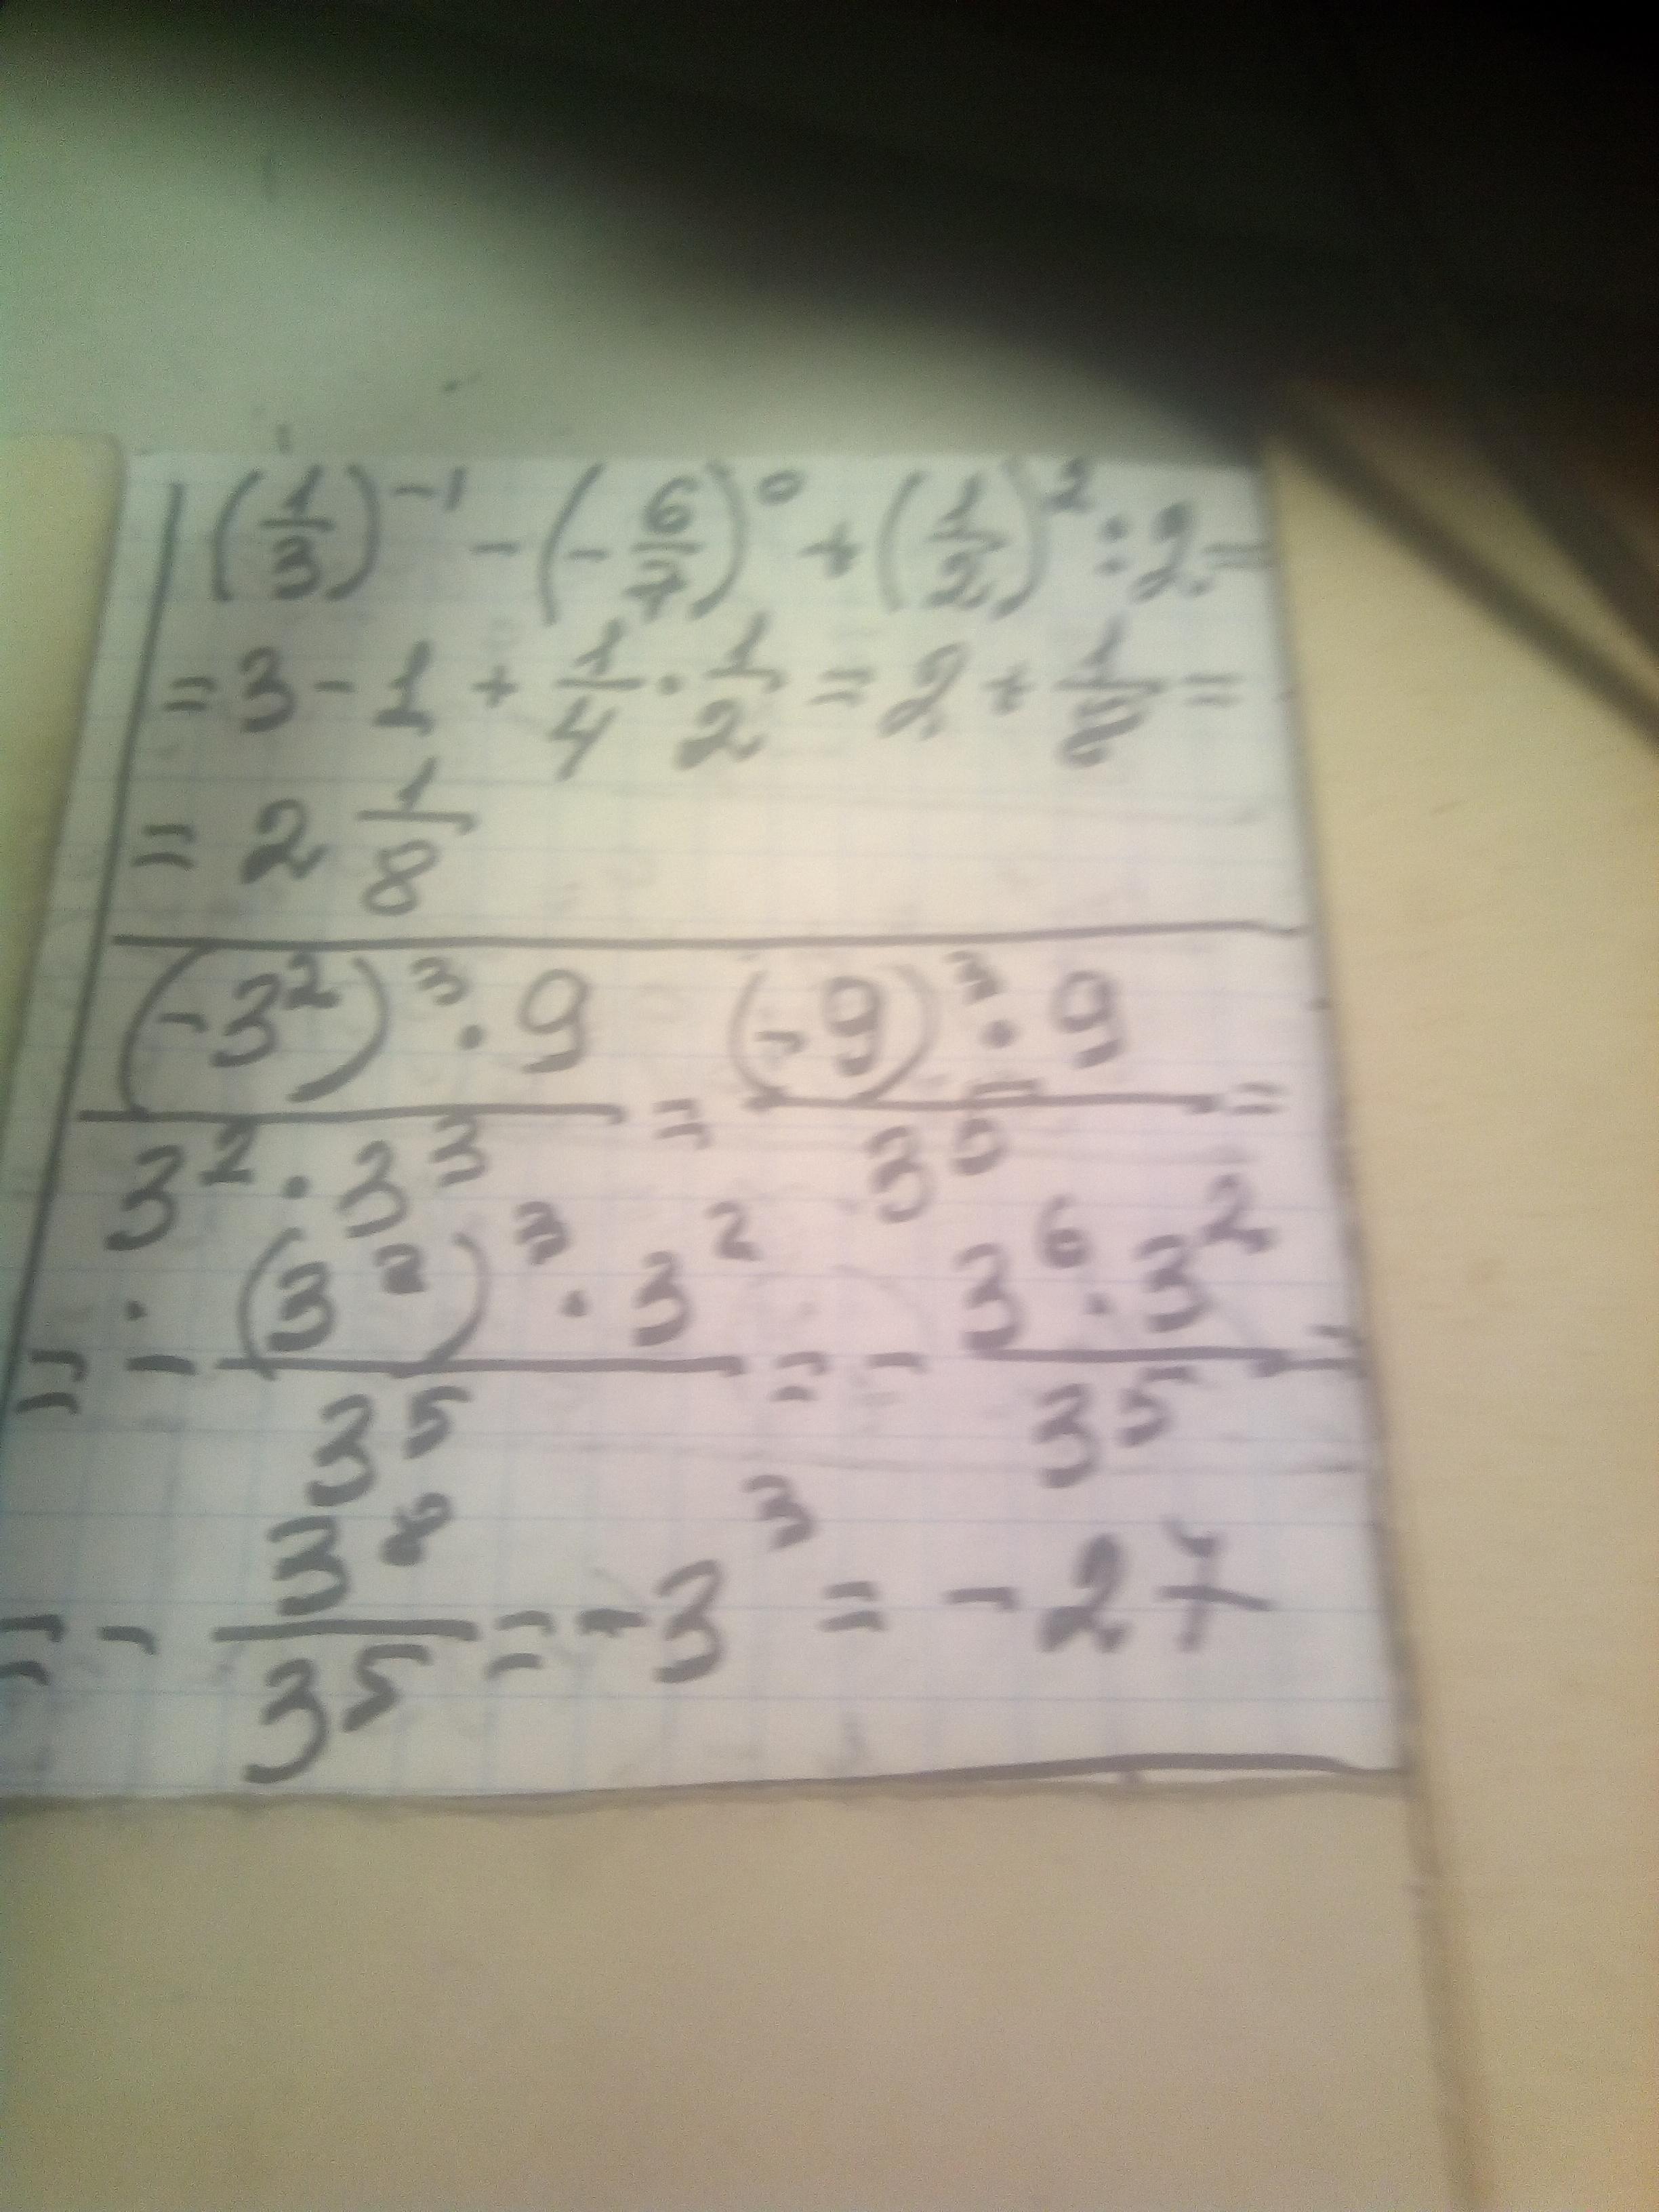 (1/3)^-1 - (-6/7)^0 + (1/2)^2 : 2 =
= 3 - 1 + 1/4 · 1/2 = 2 + 1/8 =
= 2 1/8
(-3^2)^3 · 9 / 3^2 · 3^3 = (-9)^3 · 9 / 3^5 =
= - (3^2)^3 · 3^2 / 3^5 = - 3^6 · 3^2 / 3^5 =
= - 3^8 / 3^5 = -3^3 = -27